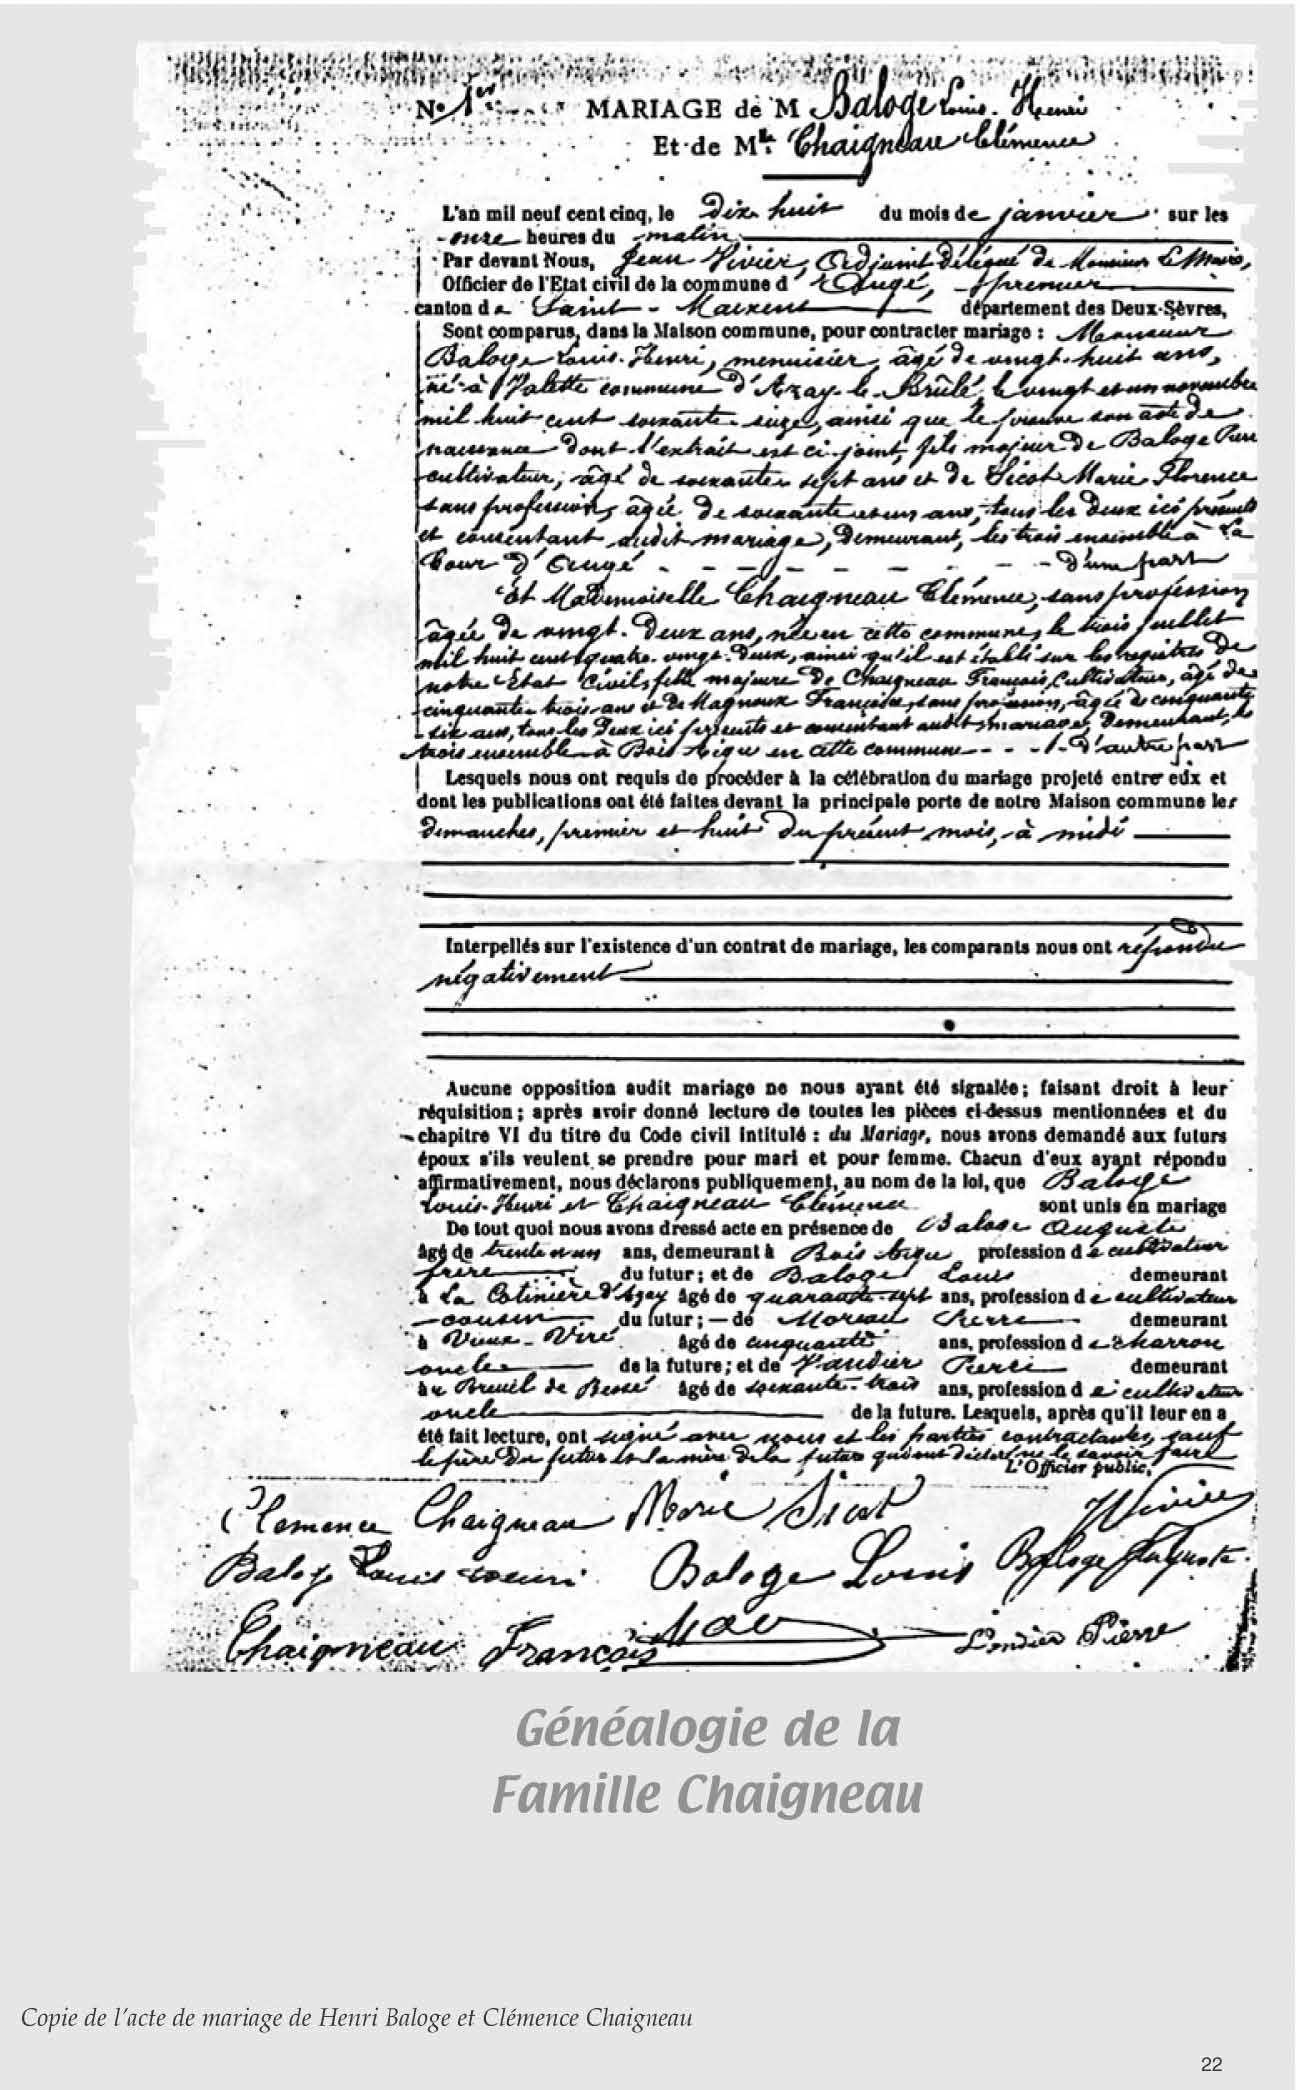 No 1er MARIAGE de M Baloge Louis-Henri
Et de Mlle Chaigneau Clémence
L'an mil neuf cent cinq, le dix huit du mois de janvier sur les
onze heures du matin
Par devant Nous, Jean Vivier, Adjoint délégué de Monsieur Le Maire,
Officier de l'Etat civil de la commune d'Augé, premier
canton de Saint-Maixent département des Deux-Sèvres,
Sont comparus, dans la Maison commune, pour contracter mariage : Monsieur
Baloge Louis-Henri, menuisier, âgé de vingt-huit ans,
né à Valette commune d'Azay-le-Brûlé, le vingt et un novembre
mil huit cent soixante-seize, ainsi que le prouve son acte de
naissance dont l'extrait est ci-joint, fils majeur de Baloge Pierre
cultivateur, âgé de soixante sept ans et de Sicot Marie Florence
sans profession, âgée de soixante et un ans, tous les deux ici présents
et consentant audit mariage, demeurant, les trois ensemble à La
Cour d'Augé - - - - - - - - d'une part
Et Mademoiselle Chaigneau Clémence, sans profession
âgée de vingt-deux ans, née en cette commune, le trois juillet
mil huit cent quatre-vingt-deux, ainsi qu'il est établi sur les registres de
notre Etat Civil, fille majeure de Chaigneau François, Cultivateur, âgé de
cinquante trois ans et de Magnoux Françoise, sans profession, âgée de cinquante
six ans, tous les deux ici présents et consentant audit mariage, Demeurant, les
trois ensemble à Bois Aigu en cette commune - - - d'autre part
Lesquels nous ont requis de procéder à la célébration du mariage projeté entre eux et
dont les publications ont été faites devant la principale porte de notre Maison commune les
dimanches, premier et huit du présent mois, à midi
Interpellés sur l'existence d'un contrat de mariage, les comparants nous ont répondu
négativement
Aucune opposition audit mariage ne nous ayant été signalée ; faisant droit à leur
réquisition ; après avoir donné lecture de toutes les pièces ci-dessus mentionnées et du
chapitre VI du titre du Code civil intitulé : du Mariage, nous avons demandé aux futurs
époux s'ils veulent se prendre pour mari et pour femme. Chacun d'eux ayant répondu
affirmativement, nous déclarons publiquement, au nom de la loi, que Baloge
Louis-Henri et Chaigneau Clémence sont unis en mariage
De tout quoi nous avons dressé acte en présence de Baloge Auguste
âgé de trente et un ans, demeurant à Bois Aigu profession de cultivateur
frère du futur ; et de Baloge Louis demeurant
à La Cotinière d'Azay âgé de quarante-sept ans, profession de cultivateur
cousin du futur ; — de Moreau Pierre demeurant
à Vieux-Viré âgé de cinquante ans, profession de charron
oncle de la future ; et de Vandier Pierre demeurant
au Breuil de Bessé âgé de soixante-trois ans, profession de cultivateur
oncle de la future. Lesquels, après qu'il leur en a
été fait lecture, ont signé avec nous et les parties contractantes, sauf
le père du futur et la mère de la future qui ont déclaré ne le savoir faire
L'Officier public,
Clemence Chaigneau Marie Sicot JVivier
Baloge Louis Henri Baloge Louis Baloge Auguste
Chaigneau François Vandier Pierre
Généalogie de la
Famille Chaigneau
Copie de l'acte de mariage de Henri Baloge et Clémence Chaigneau
22